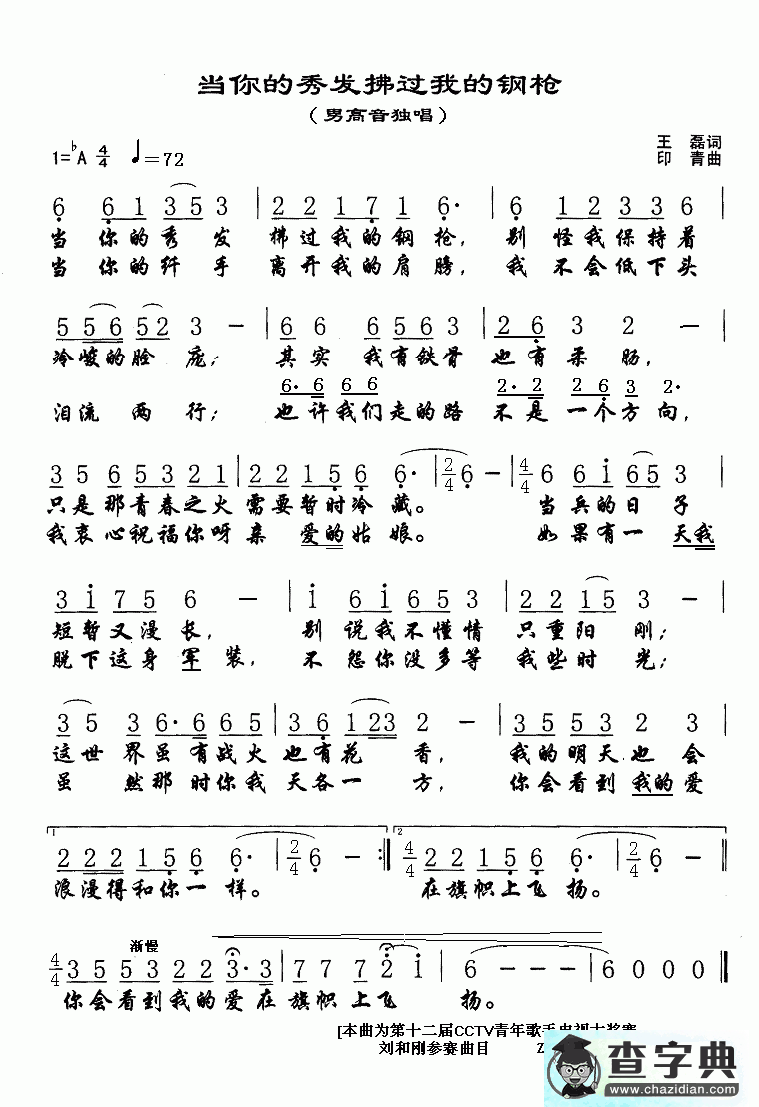 当你的秀发拂过我的钢枪
（男高音独唱）
1=♭A 4/4 ♩=72
王 磊词
印 青曲
6 6 1 3 5 3 | 2 2 1 7 1 6· | 6 1 2 3 3 6 |
当 你的秀 发 拂过我的钢枪， 别 怪我保持着
当 你的纤 手 离开我的肩膀， 我 不会低下头
5 5 6 5 2 3 － | 6 6 6 5 6 3 | 2 6 3 2 － |
冷峻的脸 庞； 其实 我有铁骨 也有柔 肠，
6· 6 6 6 2· 2 2 6 3 2·
泪流 两 行； 也许我们走的路 不是 一个方向，
3 5 6 5 3 2 1 | 2 2 1 5 6 6· | 2/4 6 － | 4/4 6 6 i 6 5 3 |
只是那青春之火 需要暂时冷 藏。 当兵的日 子
我衷心祝福你呀亲 爱的姑 娘。 如果有一 天我
3 i 7 5 6 － | i 6 i 6 5 3 | 2 2 1 5 3 － |
短暂又漫长， 别 说我不懂情 只重阳 刚；
脱下这身军装， 不 怨你没多等 我些时 光；
3 5 3 6· 6 6 5 | 3 6 1 2 3 2 － | 3 5 5 3 2 3 |
这世 界虽有战火也有花 香， 我的明天也 会
虽 然那时你我 天各一 方， 你会看到我的爱
1 2
2 2 2 1 5 6 6· | 2/4 6 － :‖ 4/4 2 2 1 5 6 6· | 2/4 6 － |
浪漫得和你一 样。 在旗帜上飞 扬。
渐慢
4/4 3 5 5 3 2 2 3· 3 | 7 7 7 2 i | 6 － － － | 6 0 0 0 ‖
你会看到我的爱在旗帜上飞 扬。
[本曲为第十二届CCTV青年歌手电视大奖赛
刘和刚参赛曲目
查字典
www.chazidian.com